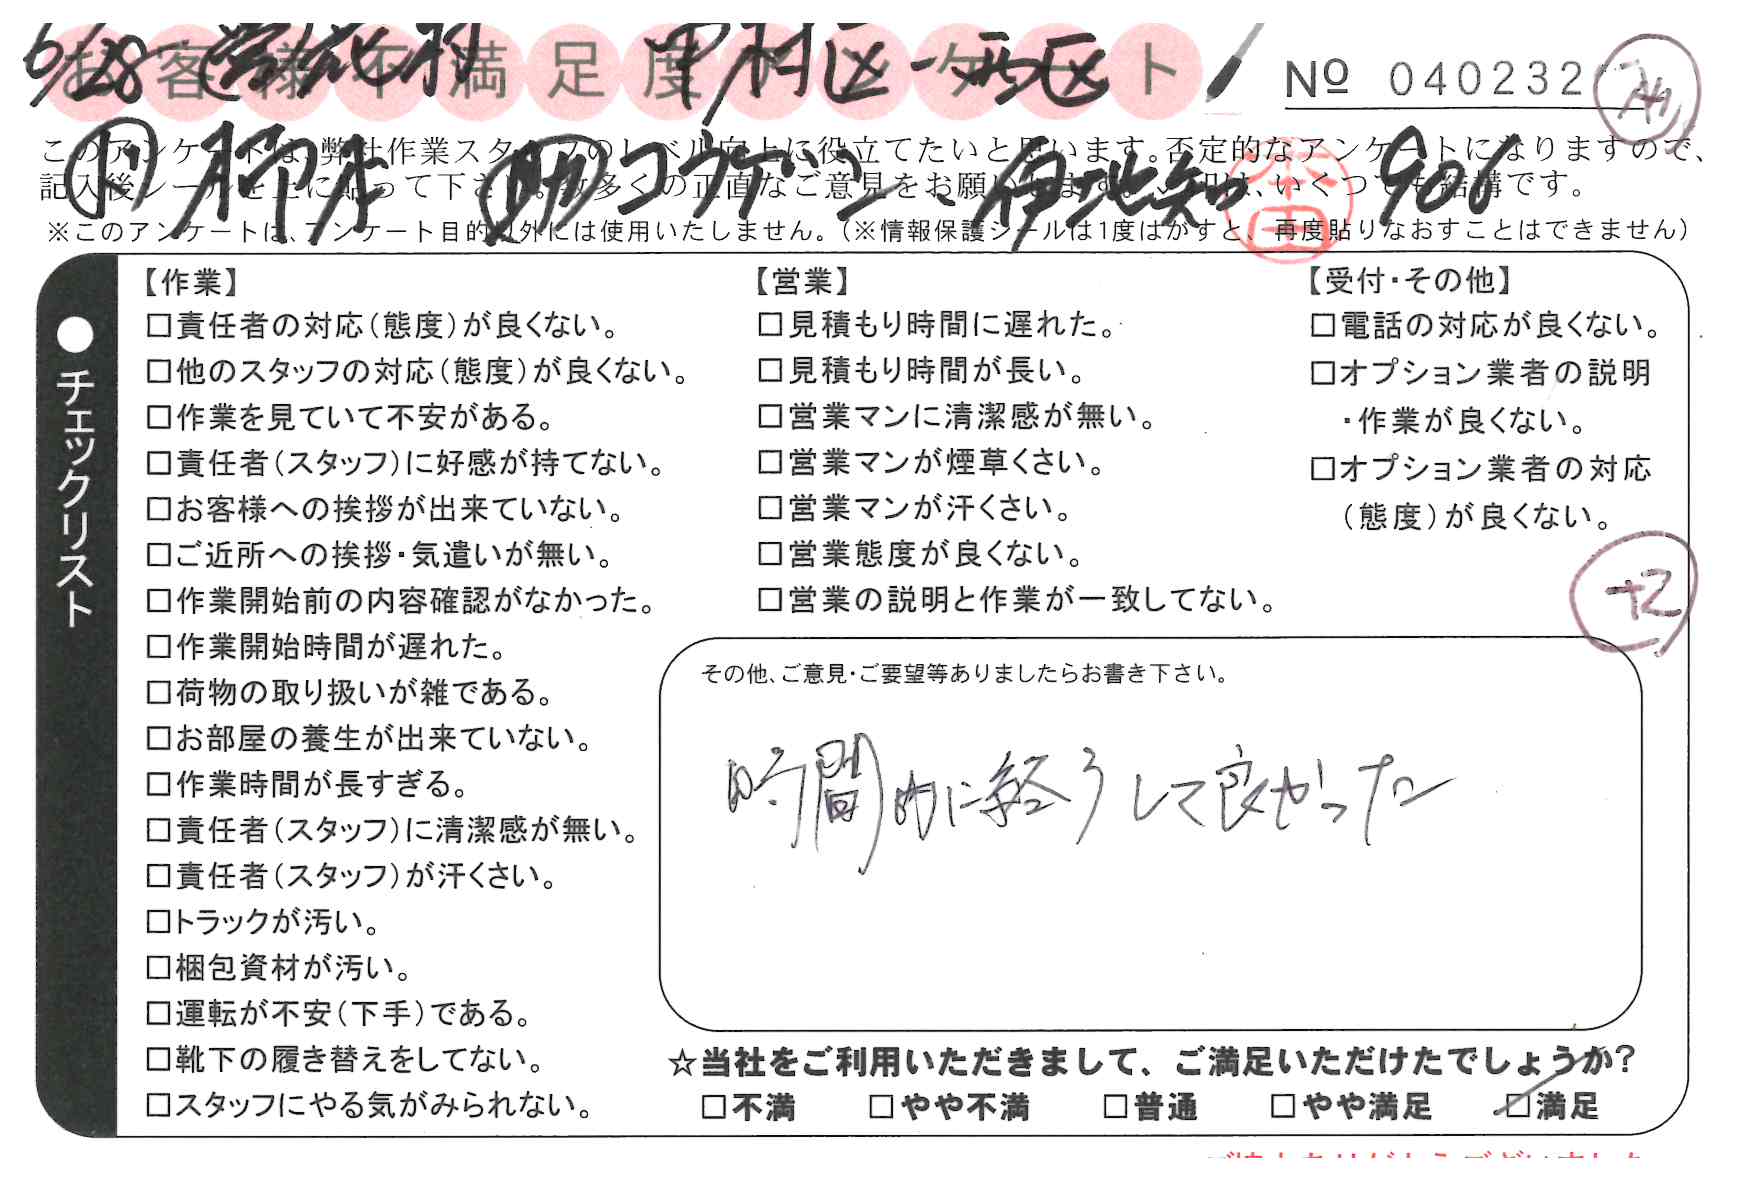 6/28 中村区-西区
お客様不満足度アンケート
№ 040232
このアンケートは、弊社作業スタッフのレベル向上に役立てたいと思います。否定的なアンケートになりますので、
記入後シールを上に貼って下さい。数多くの正直なご意見をお願いします。シールは、いくつでも結構です。
コウケン・伊地知 906
本田
※このアンケートは、アンケート目的以外には使用いたしません。（※情報保護シールは1度はがすと、再度貼りなおすことはできません）
●チェックリスト
【作業】
□責任者の対応（態度）が良くない。
□他のスタッフの対応（態度）が良くない。
□作業を見ていて不安がある。
□責任者（スタッフ）に好感が持てない。
□お客様への挨拶が出来ていない。
□ご近所への挨拶・気遣いが無い。
□作業開始前の内容確認がなかった。
□作業開始時間が遅れた。
□荷物の取り扱いが雑である。
□お部屋の養生が出来ていない。
□作業時間が長すぎる。
□責任者（スタッフ）に清潔感が無い。
□責任者（スタッフ）が汗くさい。
□トラックが汚い。
□梱包資材が汚い。
□運転が不安（下手）である。
□靴下の履き替えをしてない。
□スタッフにやる気がみられない。
【営業】
□見積もり時間に遅れた。
□見積もり時間が長い。
□営業マンに清潔感が無い。
□営業マンが煙草くさい。
□営業マンが汗くさい。
□営業態度が良くない。
□営業の説明と作業が一致してない。
【受付・その他】
□電話の対応が良くない。
□オプション業者の説明
・作業が良くない。
□オプション業者の対応
（態度）が良くない。
+2
その他、ご意見・ご要望等ありましたらお書き下さい。
時間内に終うして良かった
☆当社をご利用いただきまして、ご満足いただけたでしょうか？
□不満 □やや不満 □普通 □やや満足 □満足